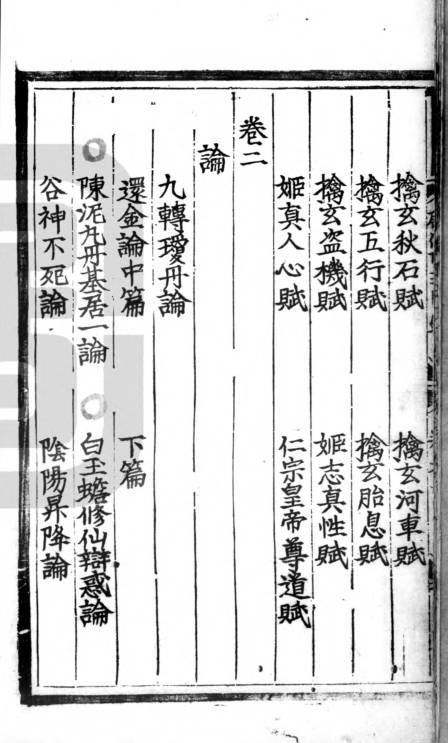 擒玄秋石賦 擒玄河車賦
擒玄五行賦 擒玄胎息賦
擒玄盗機賦 姬志真性賦
姬真人心賦 仁宗皇帝尊道賦
卷二
論
九轉瑷丹論
還金論中篇 下篇
陳泥丸丹基居一論 白玉蟾修仙辯惑論
谷神不死論 陰陽昇降論